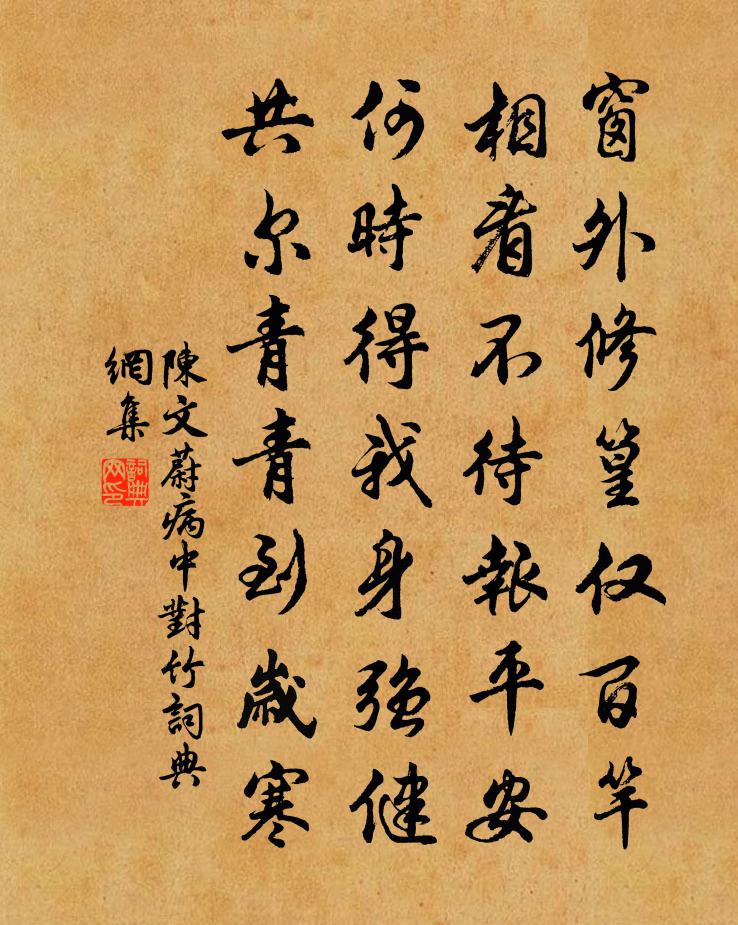 窗外修篁仅百竿
相看不待報平安
何時得我身強健
共尔青青到歲寒
陳文蔚病中對竹詞典
網集
詞典
网印